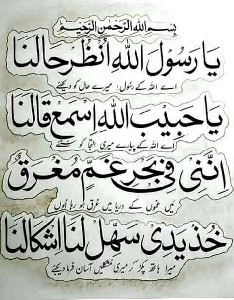 بسم اللہ الرحمن الرحیم
یا رسول اللہ أنظر حالنا
اے اللہ کے رسول! میرے حال کو دیکھئے
یا حبیب اللہ اسمع قالنا
اے اللہ کے پیارے میری التجا کو سنئے
إننی فی بحر غم مغرق
میں غموں کے دریا میں غرق ہو رہا ہوں
خذ یدی سهل لنا اشکالنا
میرا ہاتھ پکڑ کر میری مشکلیں آسان فرما دیجئے